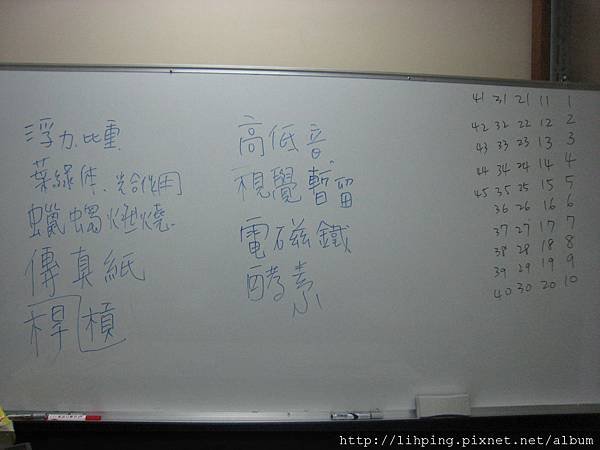 浮力比重
葉綠体.光合作用
蠟蠋燃燒
傳真紙
桿槓
高低音
視覺暫留
電磁鐵
酵素
41 31 21 11 1
42 32 22 12 2
43 33 23 13 3
44 34 24 14 4
45 35 25 15 5
36 26 16 6
37 27 17 7
38 28 18 8
39 29 19 9
40 30 20 10
http://lihping.pixnet.net/album